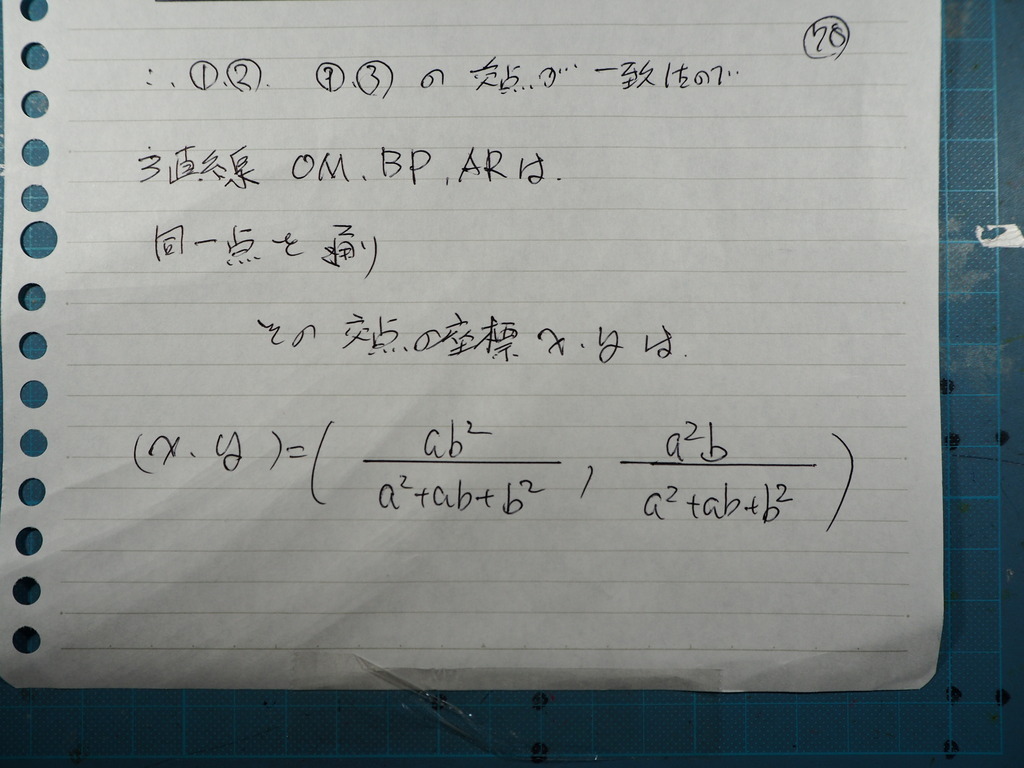 78
∴ ①,②. ①,③ の 交点が 一致するので
3直線 OM、BP, ARは.
同一点を通り
その 交点の座標 x, y は.
(x、y)=( ab²/(a²+ab+b²) , a²b/(a²+ab+b²) )